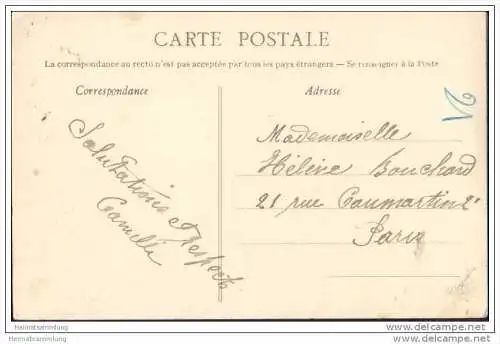 CARTE POSTALE
La correspondance au recto n'est pas acceptée par tous les pays étrangers. — Se renseigner à la Poste
Correspondance
Adresse
Salutations et respects
Camille
Mademoiselle
Hélène Bouchard
21 rue Caumartin 2¹
Paris
Heimatsammlung
Heimatsammlung
www.delcampe.net